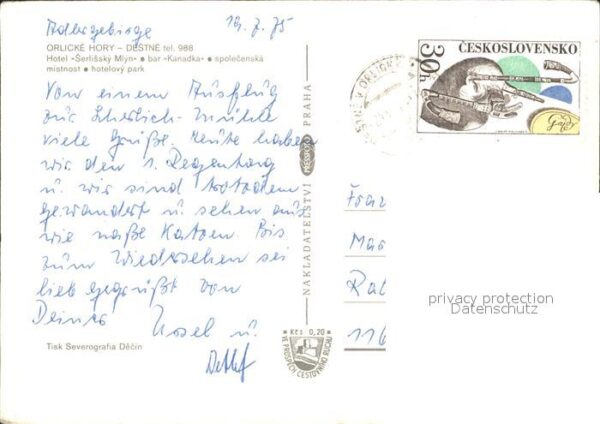 Adlergebirge 19.7.75
ORLICKÉ HORY – DEŠTNÉ tel. 988
Hotel »Šerlišský Mlýn« ● bar »Kanadka« ● společenská
místnost ● hotelový park
Von einem Ausflug
zur Scherlich-Mühle
viele Grüße. Heute haben
wir den 1. Regentag
u. wir sind trotzdem
gewandert u. sehen aus
wie naße Katzen. Bis
zum Wiedersehen sei
lieb gegrüßt von
Deiner u.
Detlef
Tisk Severografia Děčín
NAKLADATELSTVÍ PRESSFOTO PRAHA
Kčs 0,20
VE PROSPĚCH CESTOVNÍHO RUCHU
ČESKOSLOVENSKO
30h
Fran
Ma
Rat
116
privacy protection
Datenschutz